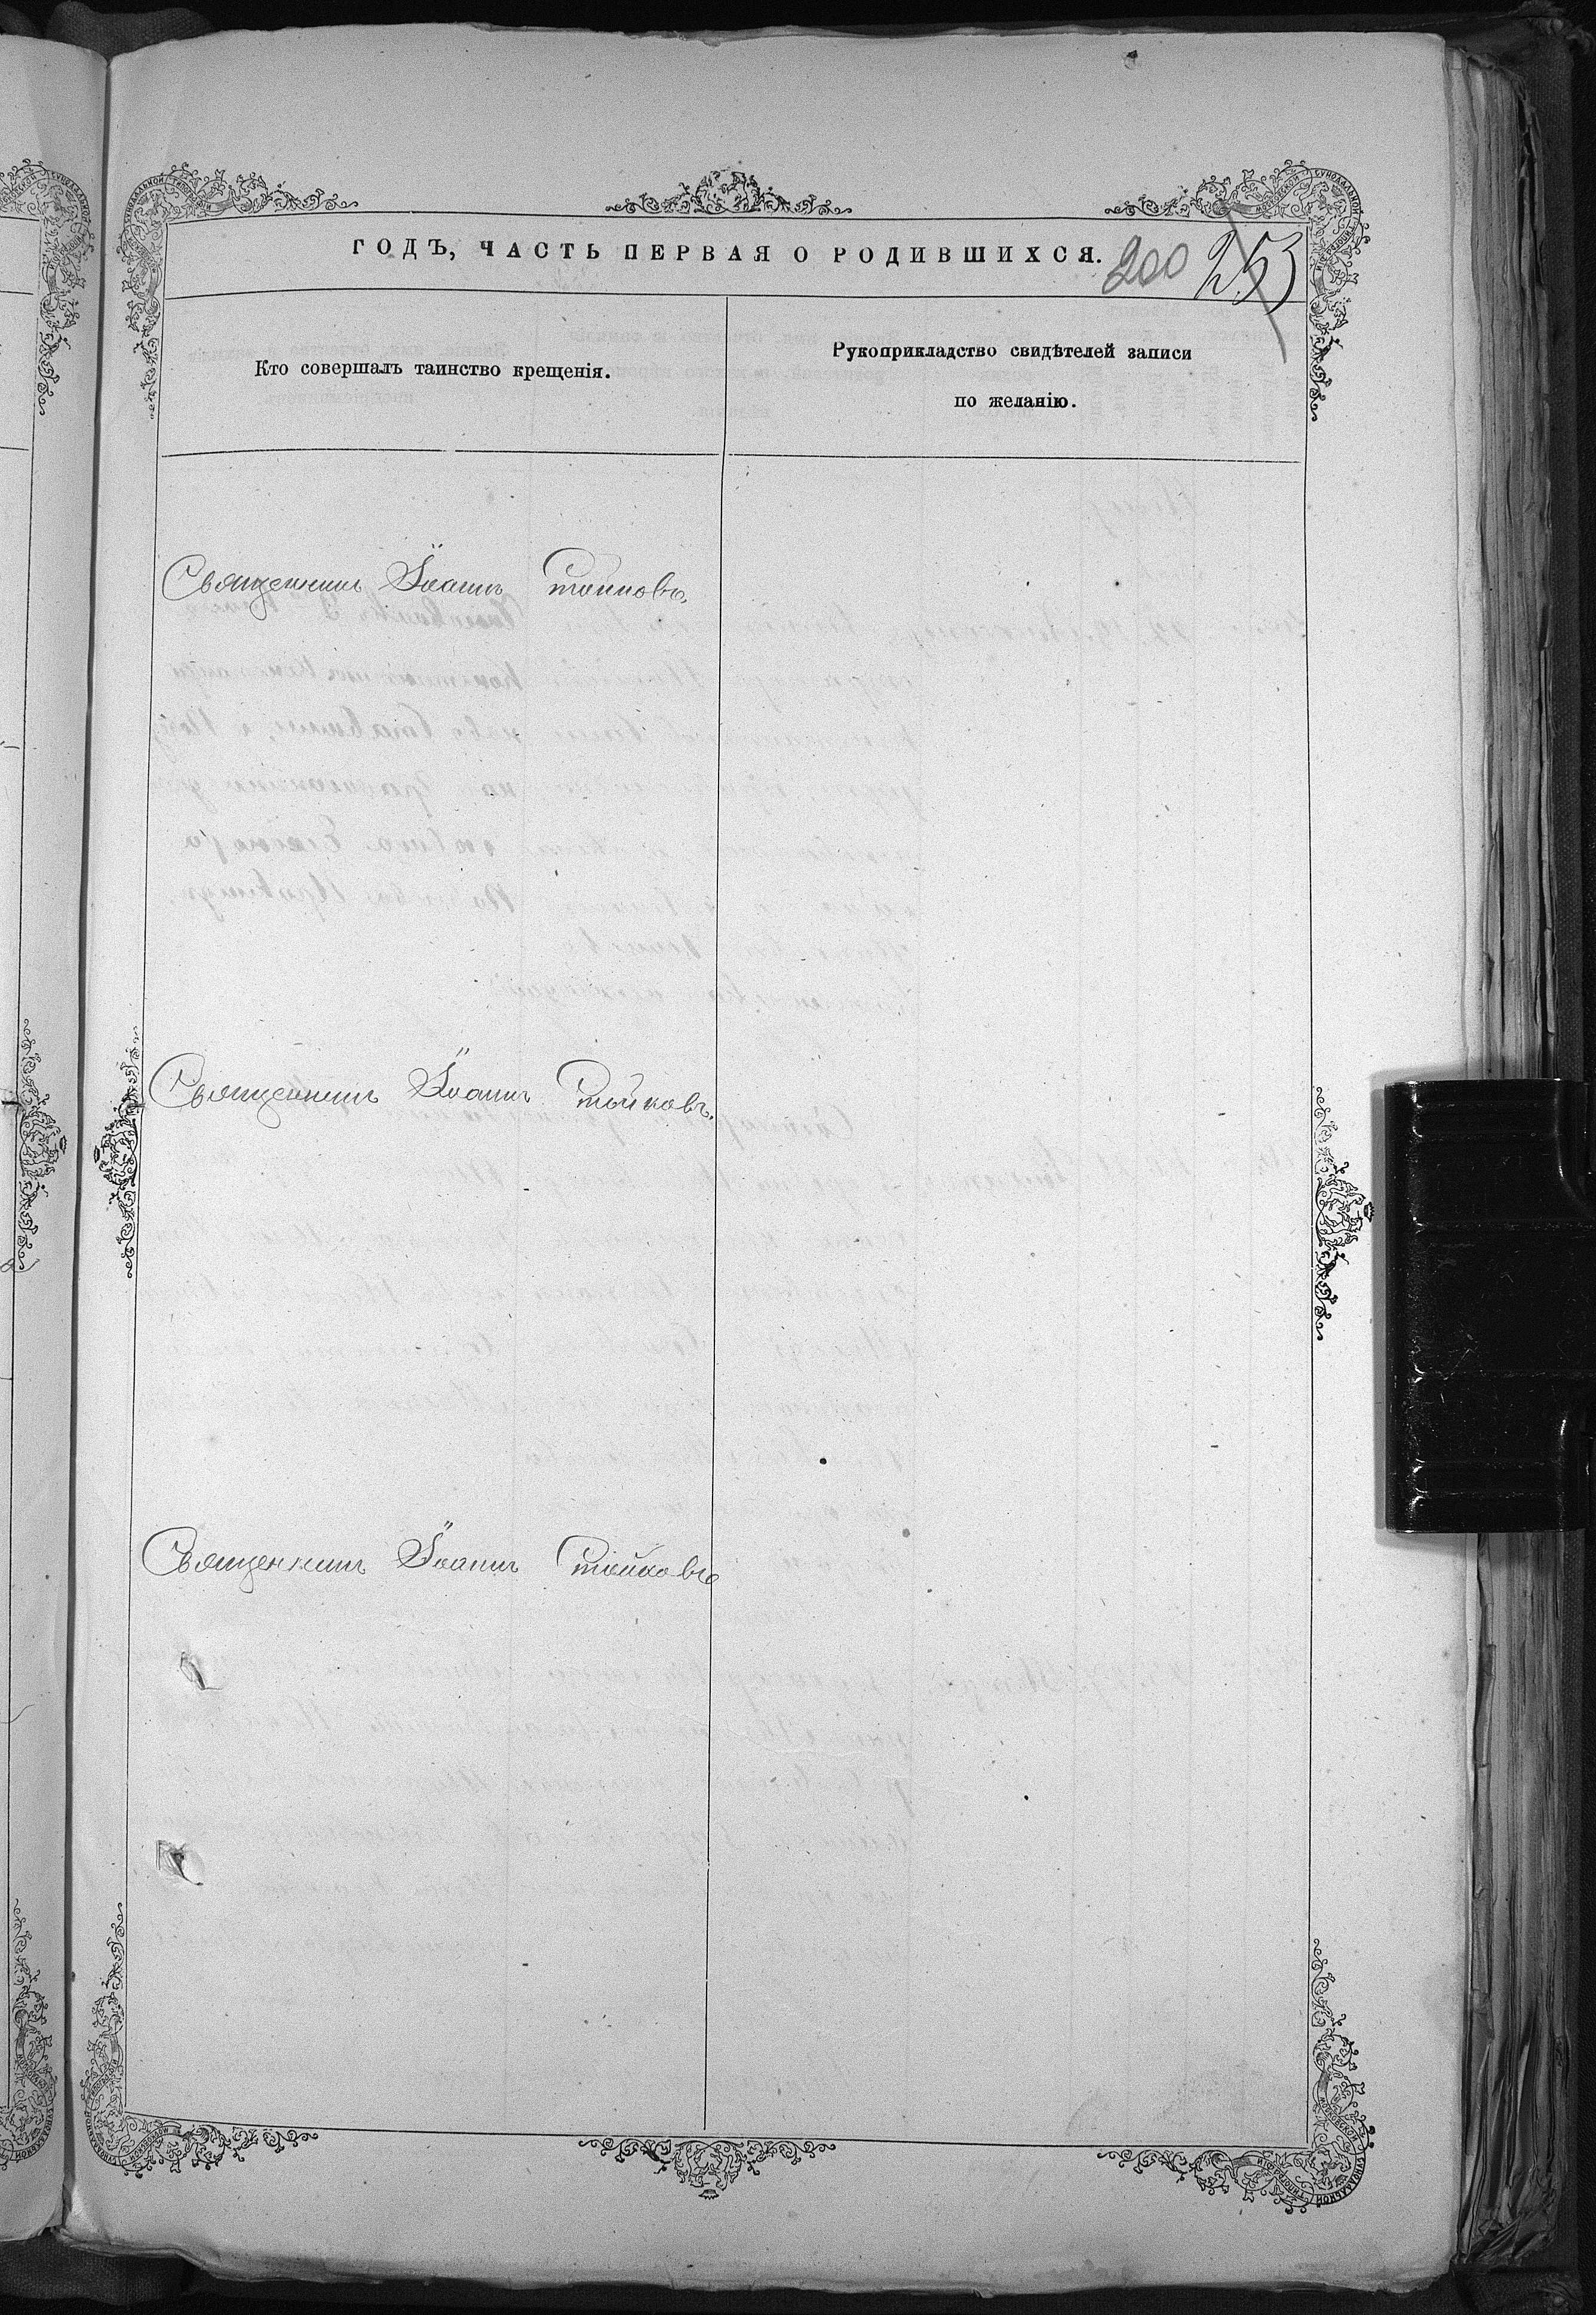 ГОДЪ, ЧАСТЬ ПЕРВАЯ О РОДИВШИХСЯ.
200 253
Кто совершалъ таинство крещенія.
Рукоприкладство свидѣтелей записи
по желанію.
Священникъ Іоаннъ Стойковъ.
Священникъ Іоаннъ Стойковъ.
Священникъ Іоаннъ Стойковъ